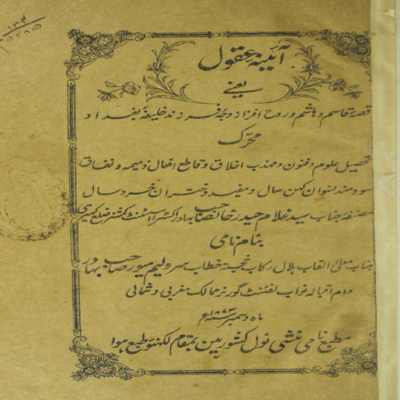 آئینۂ عقول
یعنے
قصۂ قاسم و ہاشم و روح افزا زوجہ فرزند خلیفۂ بغداد
محرک
تحصیل علوم و فنون و مہذب اخلاق و قاطع افعال ذمیمہ و نفاق
سودمند نسوان کہن سال و مفید دختران خرد سال
مصنفہ جناب سید غلام حیدر خانصاحب بہادر اکسٹرا اسسٹنٹ کمشنر
بنام نامی
جناب معلی القاب ہلال رکاب خجستہ خطاب سر ولیم میور صاحب بہادر
دام اقبالہ نواب لفٹننٹ گورنر ممالک مغربی و شمالی
ماہ دسمبر ۱۸۷۳ع
مطبع نامی منشی نول کشور میں بمقام لکھنؤ طبع ہوا